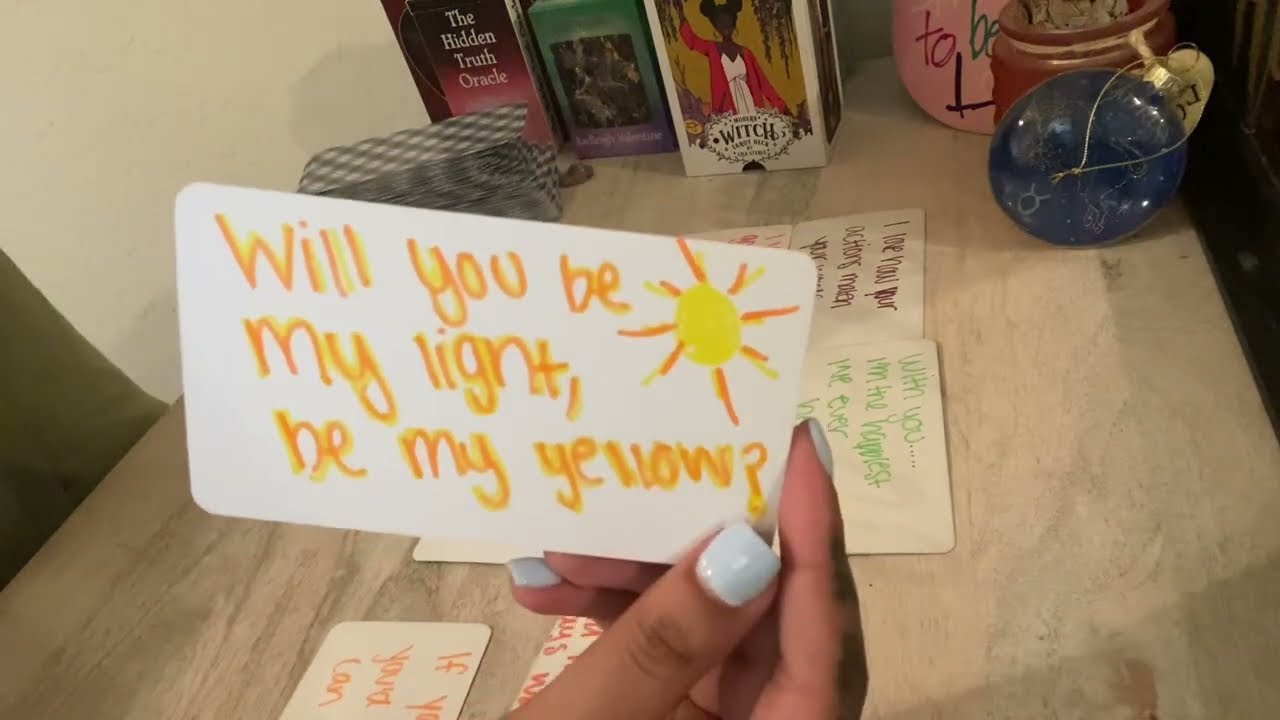 The
Hidden
Truth
Oracle
Radleigh Valentine
MODERN
WITCH
TAROT DECK
to be
Will you be
my light,
be my yellow?
I love how your
actions match
your
With you.....
I'm the happiest
me ever
If
can